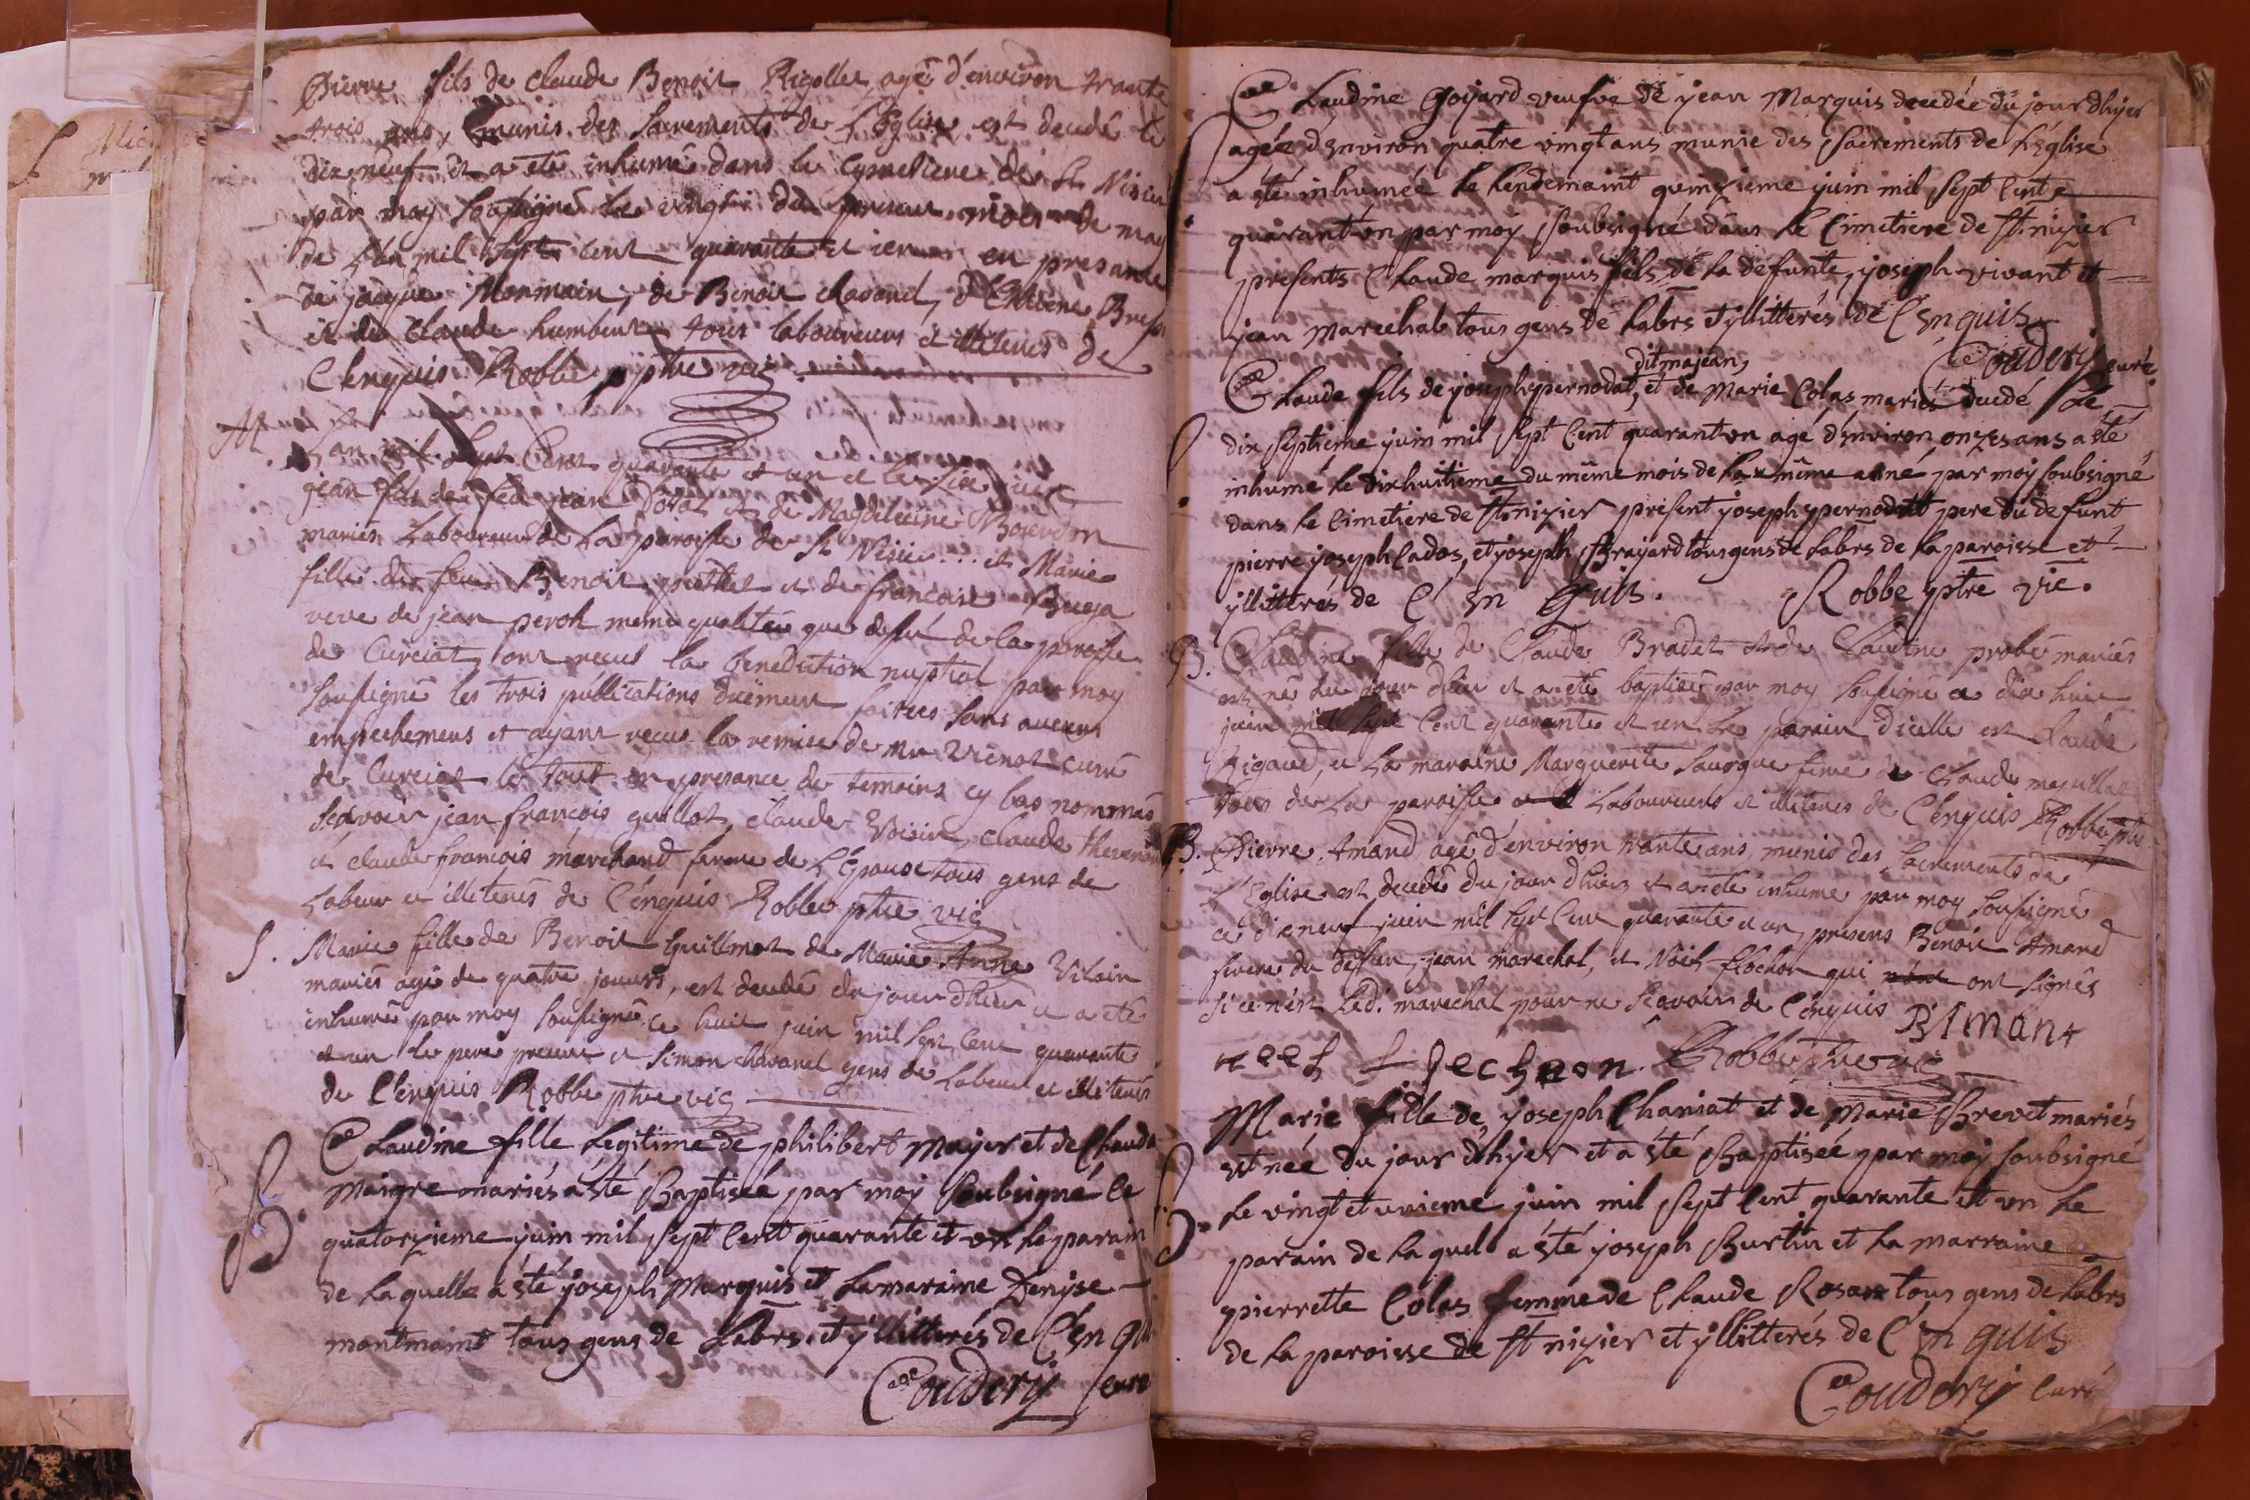 Pierre fils de claude Benoit Rigollet agé d'environ trante
trois ans, munis des sacrements de L'Eglise est decedé le
dix neuf et a eté inhumé dans le cymetiere de St Nisier
par moy soussigné le vingt du mois de may
de L'an mil sept cent quarante et un en presance
de jacque Monmain, de Benoit chavanel, d'Ethiene
et de claude humbert tous laboureurs et illiterés de
Cenquis Robbe ptre vic
M. L'an mil sept Cent quarante et un et le six juin
jean fils de feu jean et de Magdeleine
mariés Laboureur de La paroisse de St Nisier et Marie
fille de feu Benoit et de francoise
veve de jean meme qualités que dessus de la paroisse
de Curciat, ont recus la benediction nuptial par moy
soussigné les trois publications duëment faittes sans aucuns
empechemens et ayant recus la remise de mr Vienot curé
de Curciat le tout en presance de temoins cy bas nommés
sçavoir jean francois guillot, claude Voisin, claude
et claude francois marchand de L'Epouse tous gens de
Labeur et illiterés de Cenquis Robbe ptre vic
S. Marie fille de Benoit Guillemot de Marie Anne Vilain
mariés agé de quatre jours, est decedé du jour d'hier et a eté
inhumé par moy soussigné ce huit juin mil sept cent quarante
et un le pere present et Simon chavanel gens de Labeur et illiterés
de Cenquis Robbe ptre vic
Claudine fille Legitime de philibert Mayer et de Claud
B. Maigre mariés a été Baptisée par moy soubsigné le
quatorzieme juin mil sept Cent quarante et un le parain
de Laquelle a été joseph Marquis et La maraine Denyse
montmaint tous gens de Labrs et yllitterés de Cenqu
Coudery curé
Claudine Goyard veufve de jean Marquis decedée du jour dhyer
S agée d'Environ quatre vingt ans munie des Sacrements de L'église
a été inhumée le Lendemaint quinzieme juin mil sept Cent
quarant'un par moy soubsigné dans le Cimetiere de St. nizier
presents Claude marquis fils de La defunte, joseph vivant et
jean marechal tous gens de Labrs et yllitterés de Cenquis
Coudery curé
dit majean,
Claude fils de joseph pernodat, et de Marie Colas mariés decedé Le
S dix septieme juin mil sept Cent quarant'un agé d'Environ onzes ans a été
inhumé le dixhuitieme du même mois de La même anné par moy soubsigné
dans le Cimetiere de St. nizier present joseph pernodat pere du defunt
pierre joseph Cados, et joseph Brayard tous gens de Labrs de La paroisse et
yllitterés de Cenquis. Robbe ptre vic.
B. Claudine fille de Claude Bradet et de Claudine probe mariés
est né du jour d'hier et a eté baptisé par moy soussigné ce dix huit
juin mil sept Cent quarante et un Le parain d'icelle est claude
Rigaud, et La maraine Marguerite fame de claude
tous de La paroisse Laboureurs et illiterés de Cenquis Robbe ptre
Pierre Amand agé d'environ trante ans, munis des sacrements de
L'Eglise est decedé du jour d'hier et a eté inhumé par moy soussigné
ce dixneuf juin mil sept Cent quarante et un, presens Benoit Amand
frere du deffun, jean marechal, et Noël flochon qui ont signés
si ce n'est Led. marechal pour ne sçavoir de Cenquis B Iman
Robbe ptre vic
Marie fille de joseph Chaniat et de Marie Brevet mariés
est née du jour d'hyer et a été Baptisée par moy soubsigné
B. Le vingt et unieme juin mil sept Cent quarante et un Le
parain de Laquel a été joseph Burtin et La marraine
pierrette Colas femme de Claude Rosan tous gens de Labrs
de La paroisse de St nizier et yllitterés de Cenquis
Coudery Curé